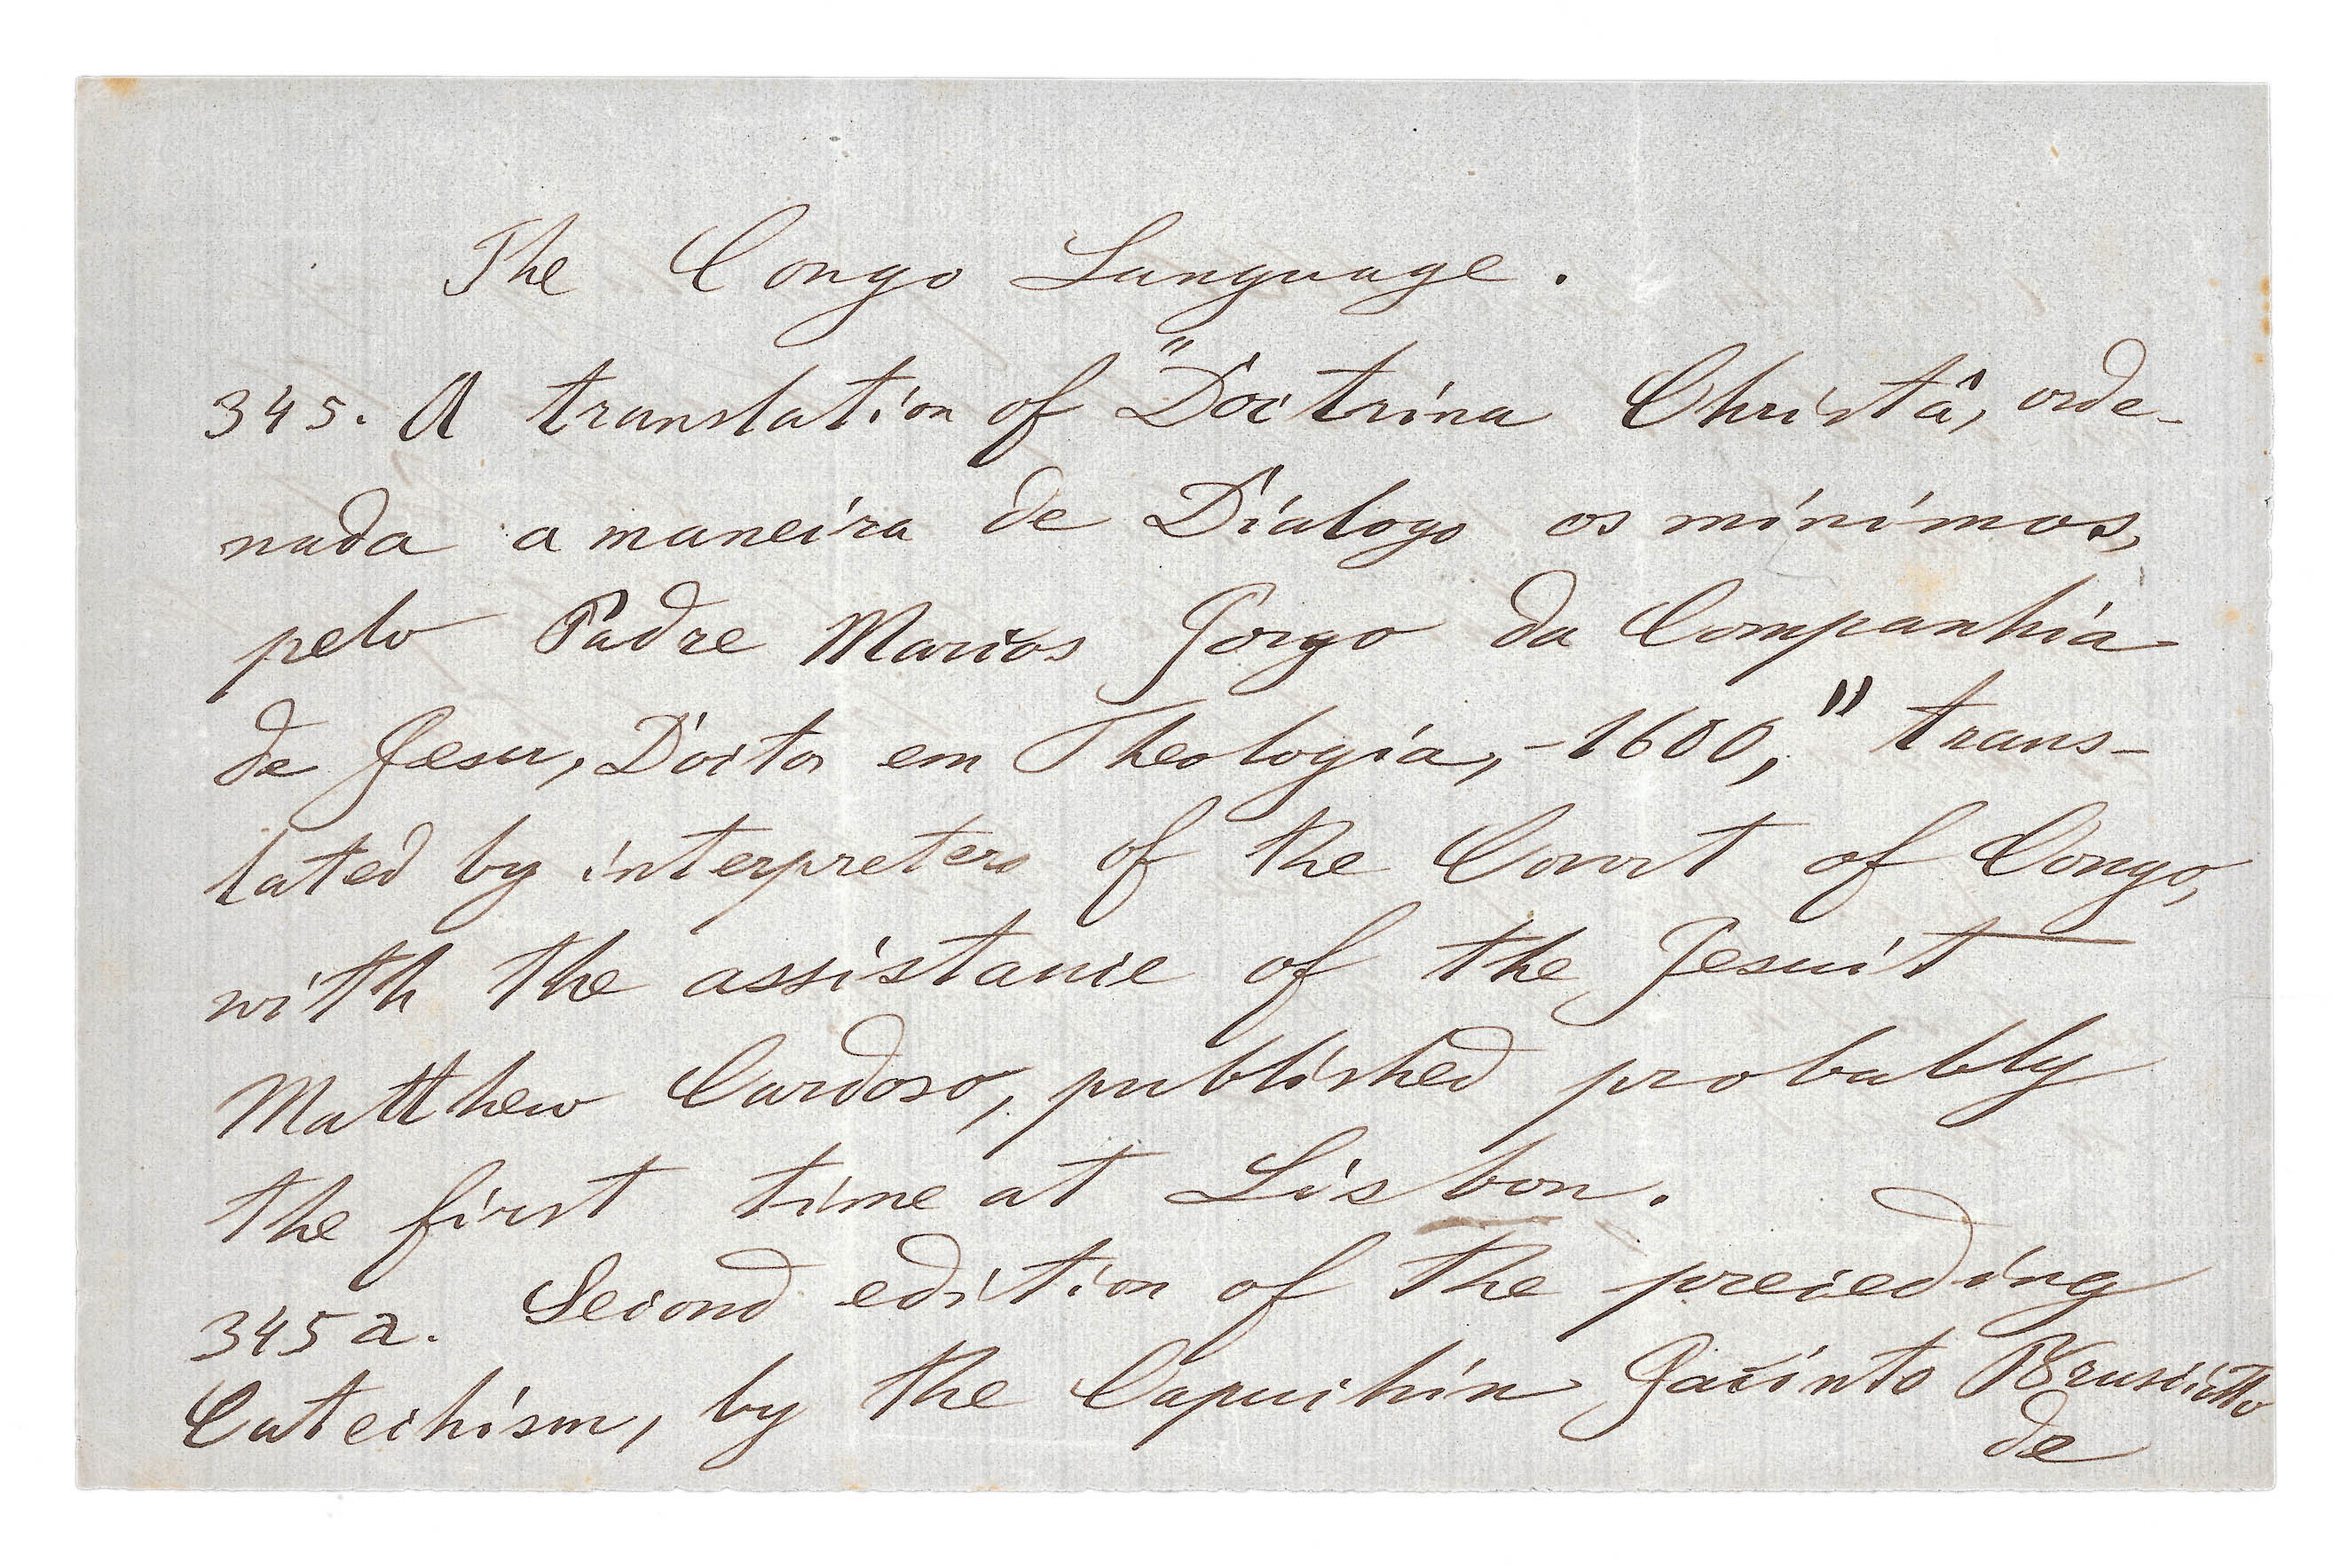 The Congo Language.
345. A translation of "Doctrina Christâ, orde-
nada a maneira de Dialogo os minimos,
pelo Padre Marcos Jorgo da Companhia
de Jesu, Doctor em Theologia, - 1600," trans-
lated by interpreters of the Court of Congo,
with the assistance of the Jesuit
Matthew Cardoso, published probably
the first time at Lisbon.
345a. Second edition of the preceding
Catechism, by the Capuchin Jacinto Brusciotto
de